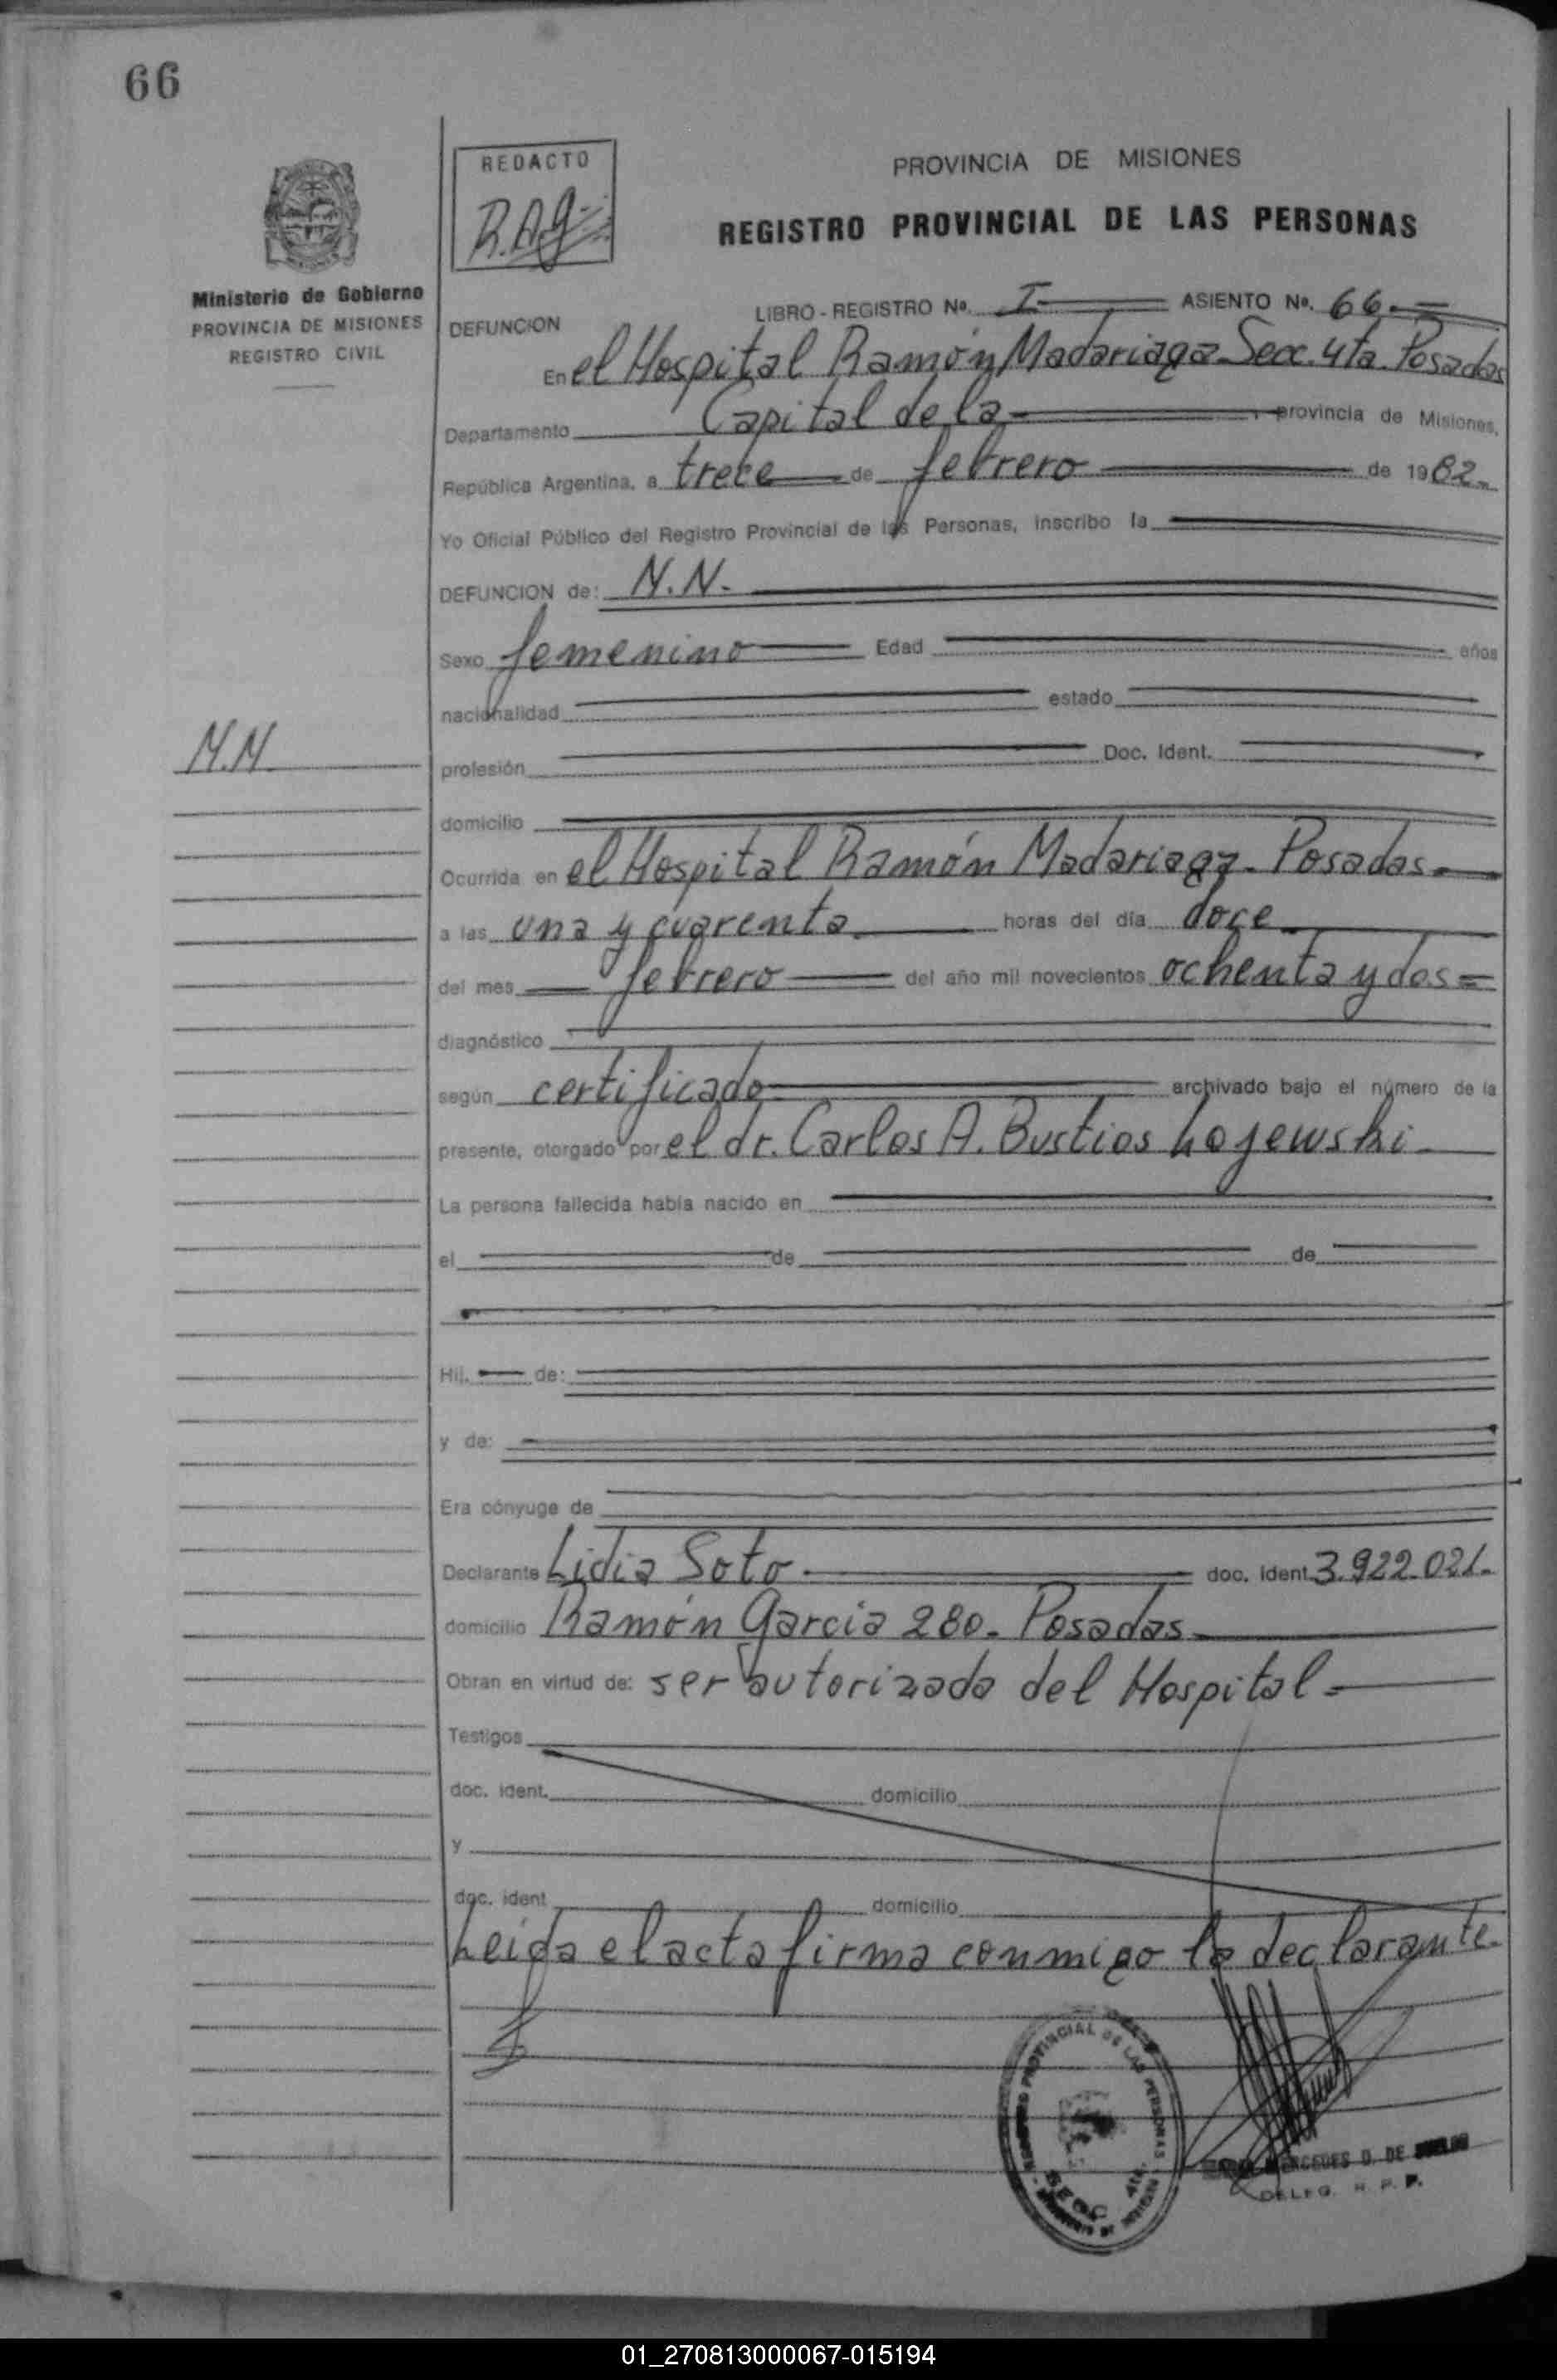 66
REDACTO
R.A.G.
PROVINCIA DE MISIONES
REGISTRO PROVINCIAL DE LAS PERSONAS
Ministerio de Gobierno
PROVINCIA DE MISIONES
REGISTRO CIVIL
LIBRO - REGISTRO Nº. I ASIENTO Nº. 66.
DEFUNCION
En el Hospital Ramón Madariaga Secc. 4ta. Posadas
Departamento Capital de la provincia de Misiones,
República Argentina, a trece de febrero de 1982.
Yo Oficial Público del Registro Provincial de las Personas, inscribo la
DEFUNCION de: N.N.
Sexo femenino Edad años
nacionalidad estado
N.N
profesión Doc. Ident.
domicilio
Ocurrida en el Hospital Ramón Madariaga. Posadas.
a las una y cuarenta horas del día doce
del mes febrero del año mil novecientos ochenta y dos
diagnóstico
según certificado archivado bajo el número de la
presente, otorgado por el dr. Carlos A. Bustios Lojewski
La persona fallecida había nacido en
el de de
Hij. de:
y de:
Era cónyuge de
Declarante Lidia Soto doc. ident. 3.922.021.
domicilio Ramón Garcia 280. Posadas
Obran en virtud de: ser autorizada del Hospital
Testigos
doc. ident. domicilio
y
doc. ident domicilio
Leida el acta firma conmigo la declarante.
PROVINCIAL DE LAS PERSONAS
SECC 4ta.
MERCEDES D. DE
DELEG. R. P. P.
01_270813000067-015194